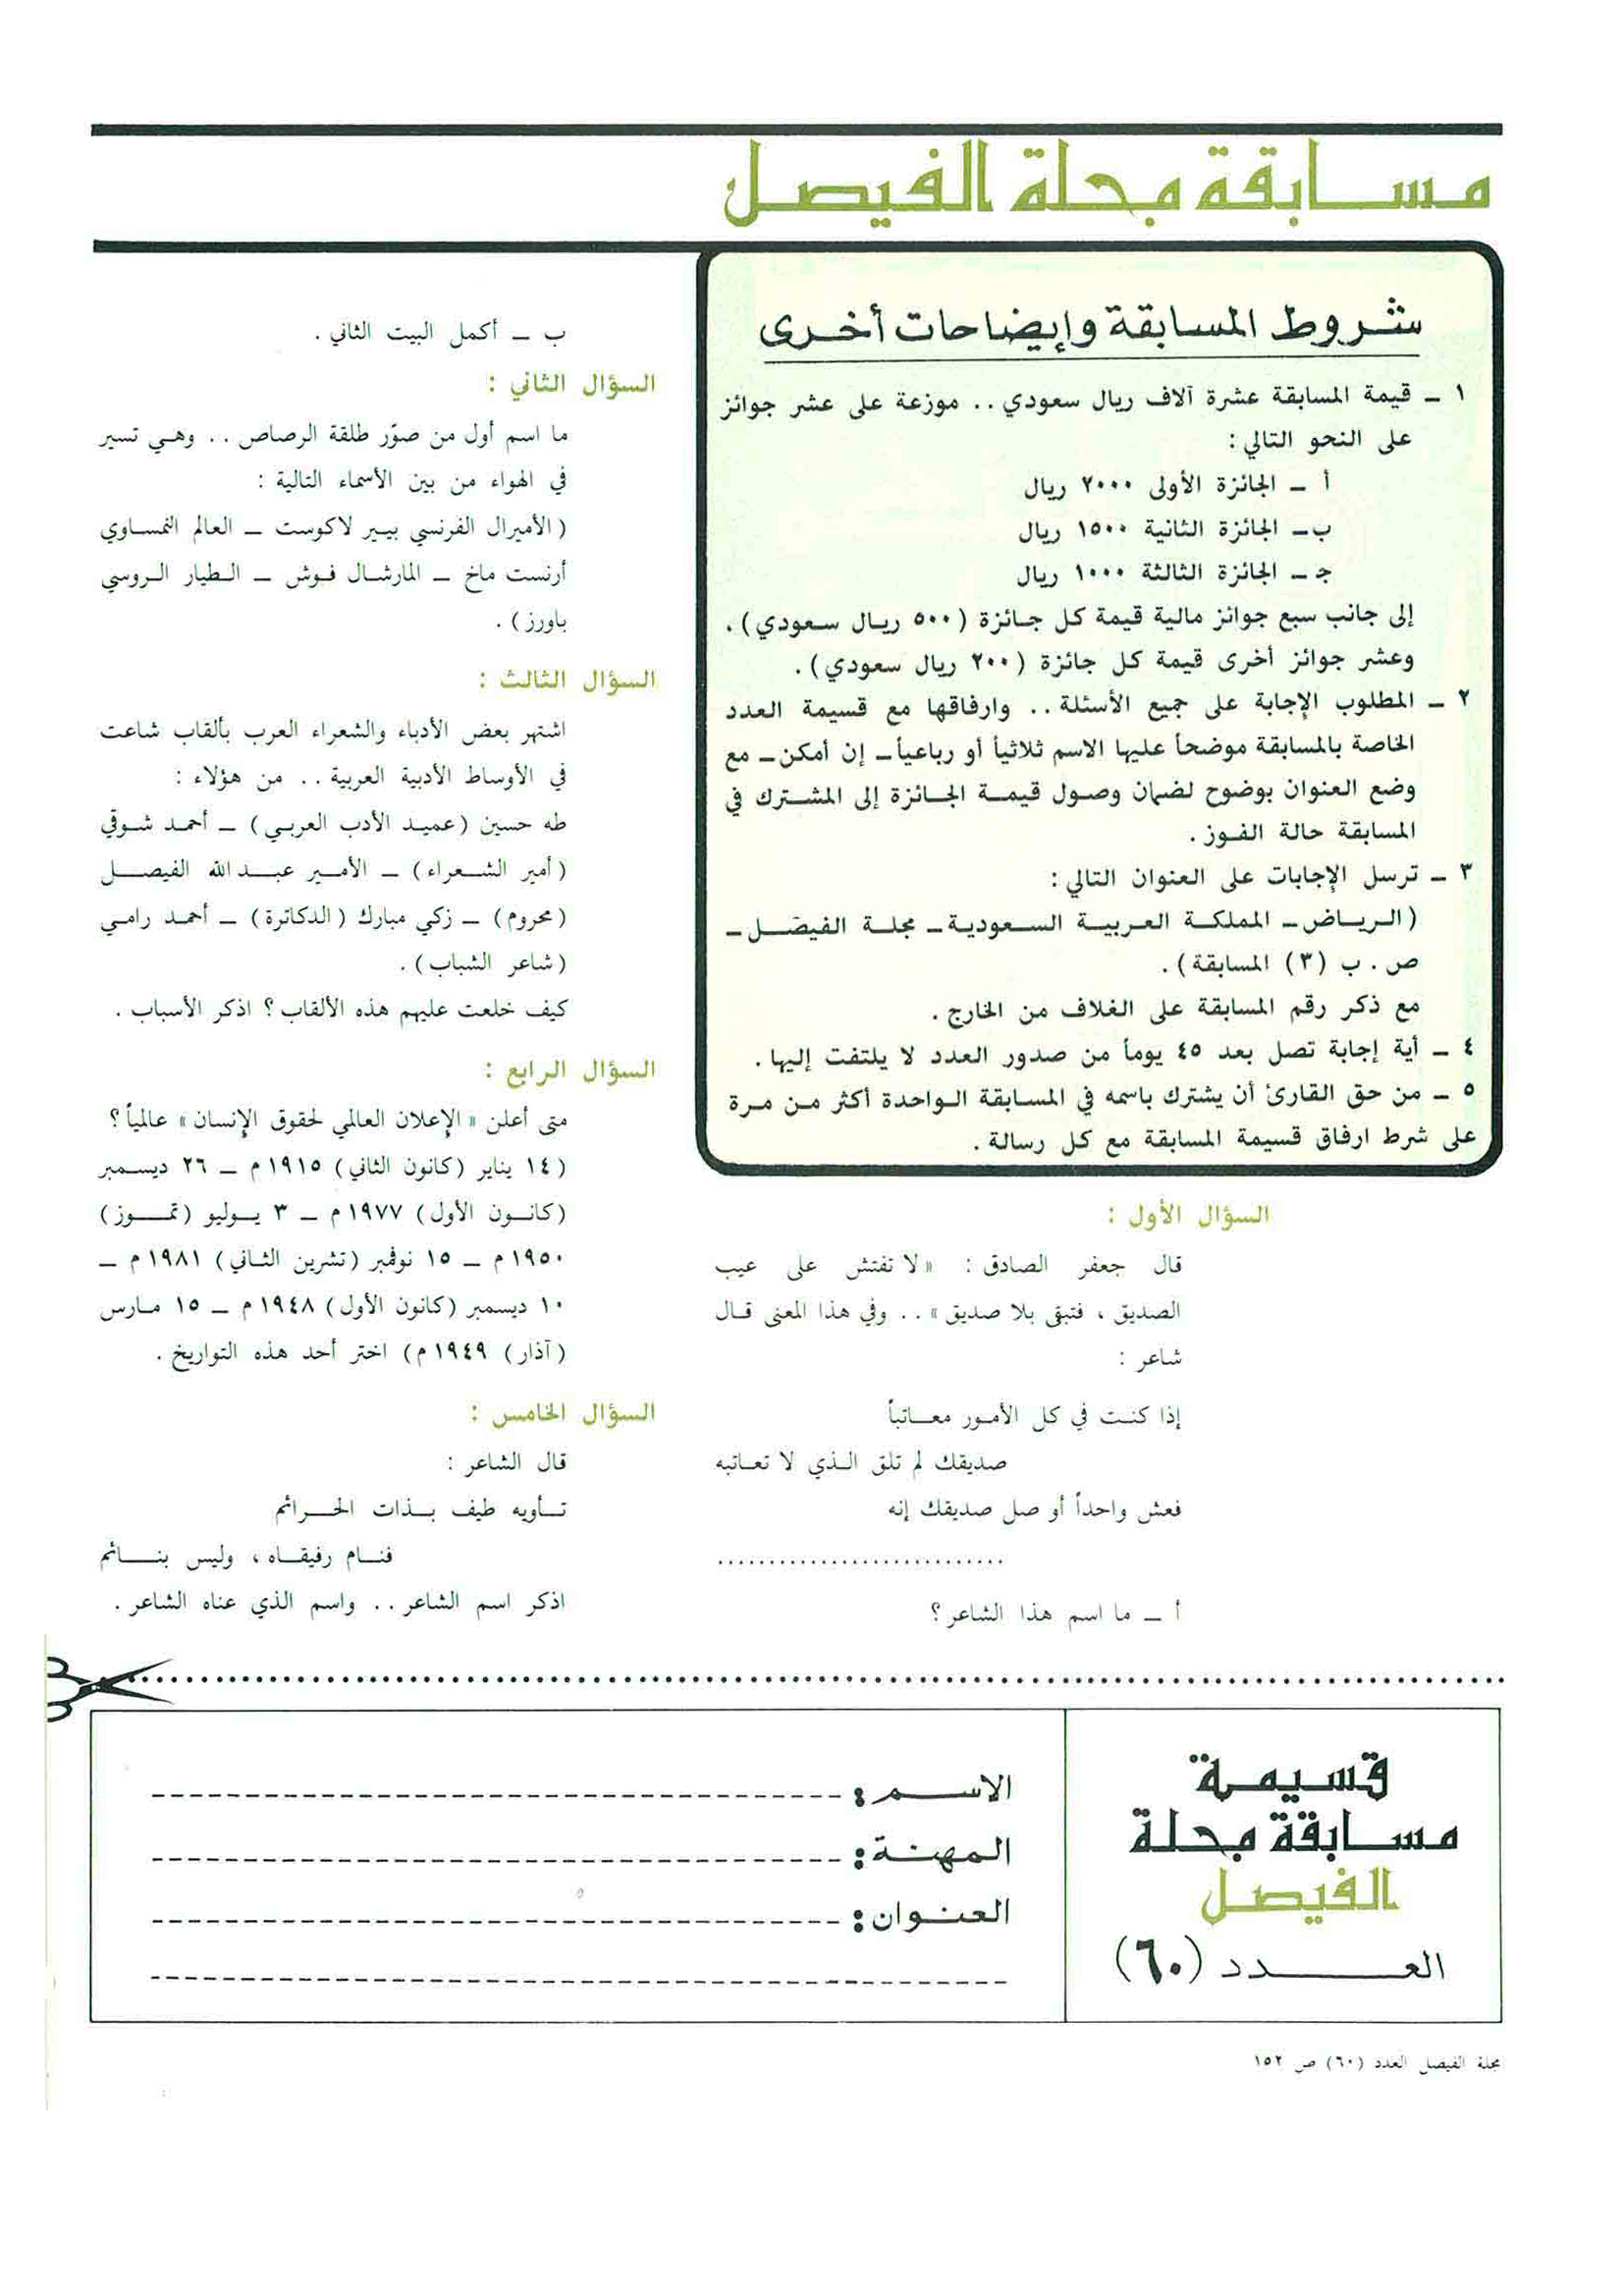 مسابقة مجلة الفيصل
شروط المسابقة وإيضاحات أخرى
١ ـ قيمة المسابقة عشرة آلاف ريال سعودي .. موزعة على عشر جوائز
على النحو التالي :
أ ـ الجائزة الأولى ٢٠٠٠ ريال
ب ـ الجائزة الثانية ١٥٠٠ ريال
جـ ـ الجائزة الثالثة ١٠٠٠ ريال
إلى جانب سبع جوائز مالية قيمة كل جائزة (٥٠٠ ريال سعودي) ،
وعشر جوائز أخرى قيمة كل جائزة (٢٠٠ ريال سعودي) .
٢ ـ المطلوب الإجابة على جميع الأسئلة .. وارفاقها مع قسيمة العدد
الخاصة بالمسابقة موضحاً عليها الاسم ثلاثياً أو رباعياً ـ إن أمكن ـ مع
وضع العنوان بوضوح لضمان وصول قيمة الجائزة إلى المشترك في
المسابقة حالة الفوز .
٣ ـ ترسل الإجابات على العنوان التالي :
(الرياض ـ المملكة العربية السعودية ـ مجلة الفيصل ـ
ص . ب (٣) المسابقة) .
مع ذكر رقم المسابقة على الغلاف من الخارج .
٤ ـ أية إجابة تصل بعد ٤٥ يوماً من صدور العدد لا يلتفت إليها .
٥ ـ من حق القارئ أن يشترك باسمه في المسابقة الواحدة أكثر من مرة
على شرط ارفاق قسيمة المسابقة مع كل رسالة .
السؤال الأول :
قال جعفر الصادق : « لا تفتش على عيب
الصديق ، فتبقى بلا صديق » .. وفي هذا المعنى قال
شاعر :
إذا كنت في كل الأمور معاتباً
صديقك لم تلق الذي لا تعاتبه
فعش واحداً أو صل صديقك إنه
............................
أ ـ ما اسم هذا الشاعر ؟
ب ـ أكمل البيت الثاني .
السؤال الثاني :
ما اسم أول من صوّر طلقة الرصاص .. وهي تسير
في الهواء من بين الأسماء التالية :
(الأميرال الفرنسي بيير لاكوست ـ العالم النمساوي
أرنست ماخ ـ المارشال فوش ـ الطيار الروسي
باورز) .
السؤال الثالث :
اشتهر بعض الأدباء والشعراء العرب بألقاب شاعت
في الأوساط الأدبية العربية .. من هؤلاء :
طه حسين (عميد الأدب العربي) ـ أحمد شوقي
(أمير الشعراء) ـ الأمير عبد الله الفيصل
(محروم) ـ زكي مبارك (الدكاترة) ـ أحمد رامي
(شاعر الشباب) .
كيف خلعت عليهم هذه الألقاب ؟ اذكر الأسباب .
السؤال الرابع :
متى أعلن « الإعلان العالمي لحقوق الإنسان » عالمياً ؟
(١٤ يناير (كانون الثاني) ١٩١٥ م ـ ٢٦ ديسمبر
(كانون الأول) ١٩٧٧ م ـ ٣ يوليو (تموز)
١٩٥٠ م ـ ١٥ نوفمبر (تشرين الثاني) ١٩٨١ م ـ
١٠ ديسمبر (كانون الأول) ١٩٤٨ م ـ ١٥ مارس
(آذار) ١٩٤٩ م) اختر أحد هذه التواريخ .
السؤال الخامس :
قال الشاعر :
تأوبه طيف بذات الجرائم
فنام رفيقاه ، وليس بنائم
اذكر اسم الشاعر .. واسم الذي عناه الشاعر .
قسيمة
مسابقة مجلة
الفيصل
العدد (٦٠)
الاسم :
المهنة :
العنوان :
مجلة الفيصل العدد (٦٠) ص ١٥٢